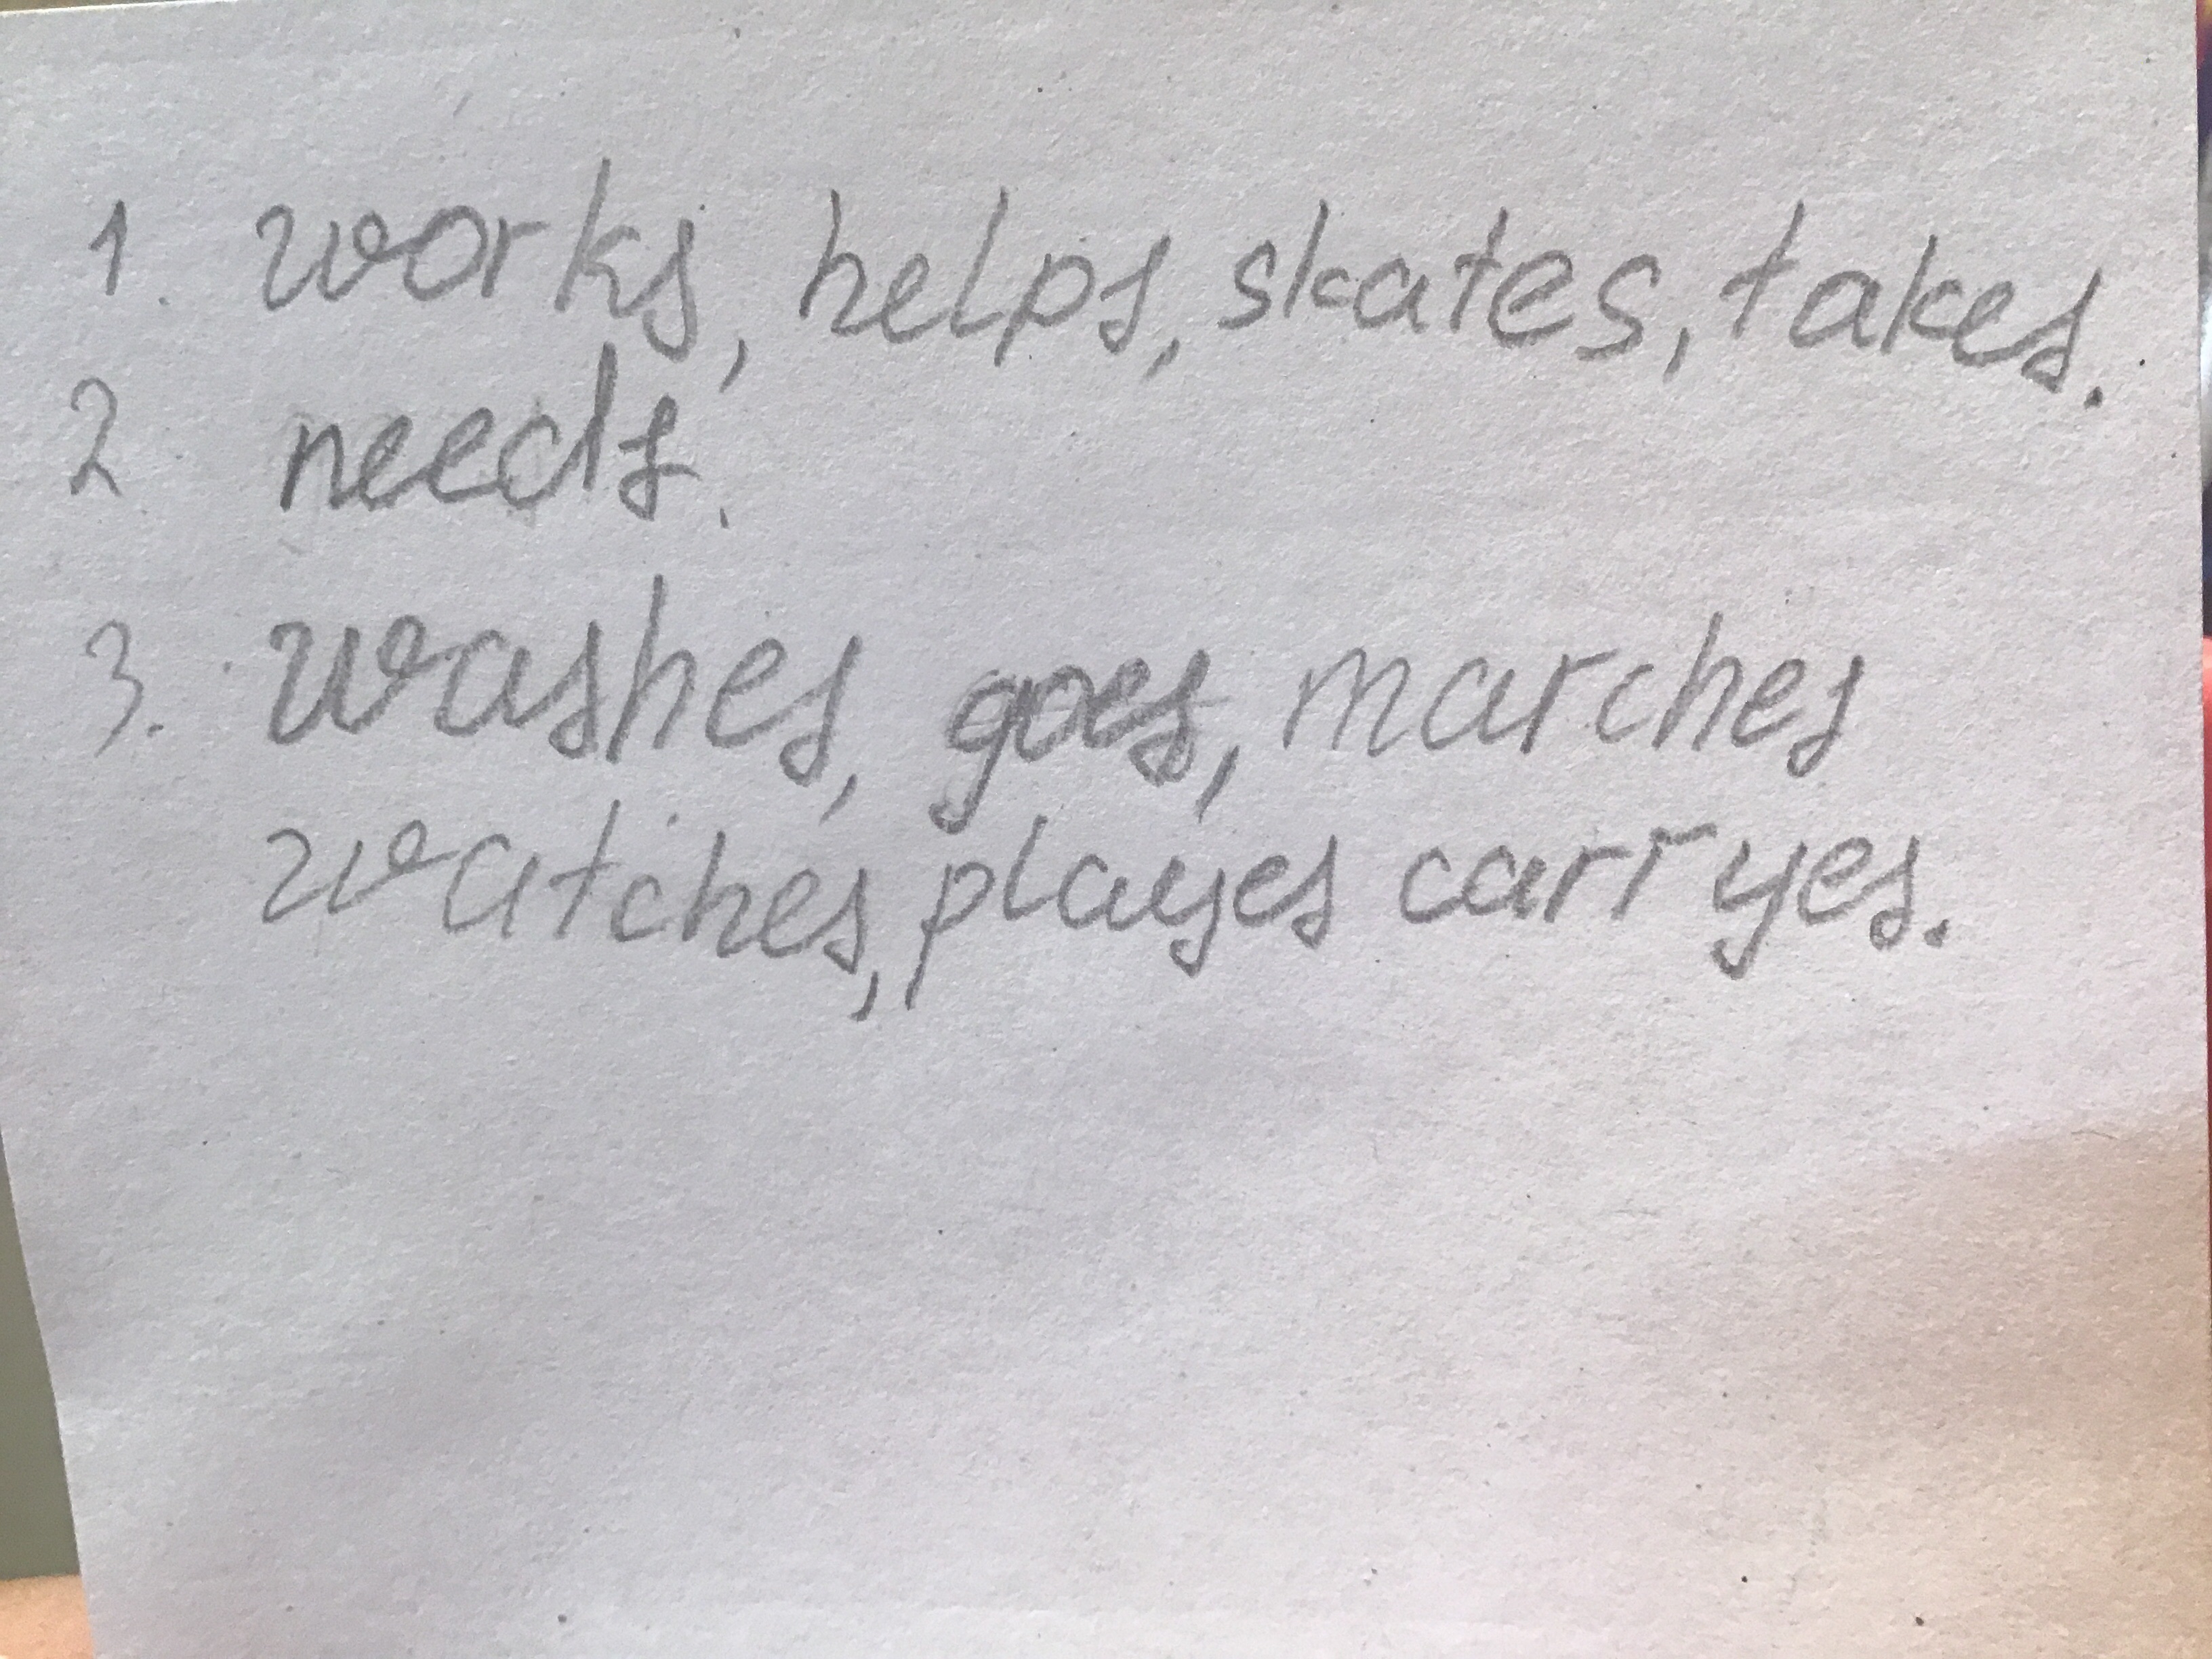 1. works, helps, skates, takes.
2 needs.
3. washes, goes, marches
watches, playes carryes.